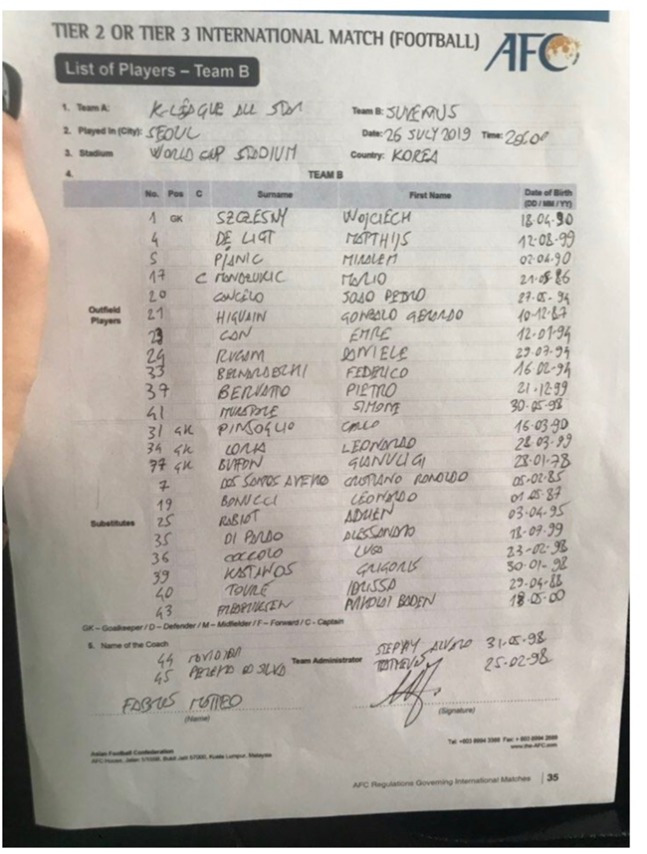 TIER 2 OR TIER 3 INTERNATIONAL MATCH (FOOTBALL) AFC
List of Players – Team B
1. Team A: K-LEAGUE ALL STAR Team B: JUVENTUS
2. Played in (City): SEOUL Date: 26 JULY 2019 Time: 20:00
3. Stadium WORLD CUP STADIUM Country: KOREA
4. TEAM B
No. Pos C Surname First Name Date of Birth
(DD / MM / YY)
1 GK SZCZESNY WOJCIECH 18.04.90
4 DE LIGT MATTHIJS 12.08.99
5 PJANIC MIRALEM 02.04.90
17 C MANDZUKIC MARIO 21.05.86
20 CANCELO JOAO PEDRO 27.05.94
Outfield
Players
21 HIGUAIN GONZALO GERARDO 10.12.87
23 CAN EMRE 12.01.94
24 RUGANI DANIELE 29.07.94
33 BERNARDESCHI FEDERICO 16.02.94
37 BERUATTO PIETRO 21.12.99
41 MURATORE SIMONE 30.05.98
31 GK PINSOGLIO CARLO 16.03.90
34 GK LORIA LEONARDO 28.03.99
77 GK BUFFON GIANLUIGI 28.01.78
7 DOS SANTOS AVEIRO CRISTIANO RONALDO 05.02.85
19 BONUCCI LEONARDO 01.05.87
Substitutes 25 RABIOT ADRIEN 03.04.95
35 DI PARDO ALESSANDRO 18.07.99
36 COCCOLO LUCA 23-02-98
39 KASTANOS GRIGORIS 30.01-98
40 TOURÉ IDRISSA 29.04-88
43 NIKOLAI BADEN 18.05-00
GK – Goalkeeper / D – Defender / M – Midfielder / F – Forward / C - Captain
5. Name of the Coach
44 STEPHY ALVARO 31.05-98
45 PEREIRA DA SILVA Team Administrator MATHEUS 25-02-98
FABRIS MATTEO
(Name) (Signature)
Asian Football Confederation
AFC House, Jalan 1/155B, Bukit Jalil 57000, Kuala Lumpur, Malaysia
Tel: +603 8994 3388 Fax: + 603 8994 2689
www.the-AFC.com
AFC Regulations Governing International Matches | 35